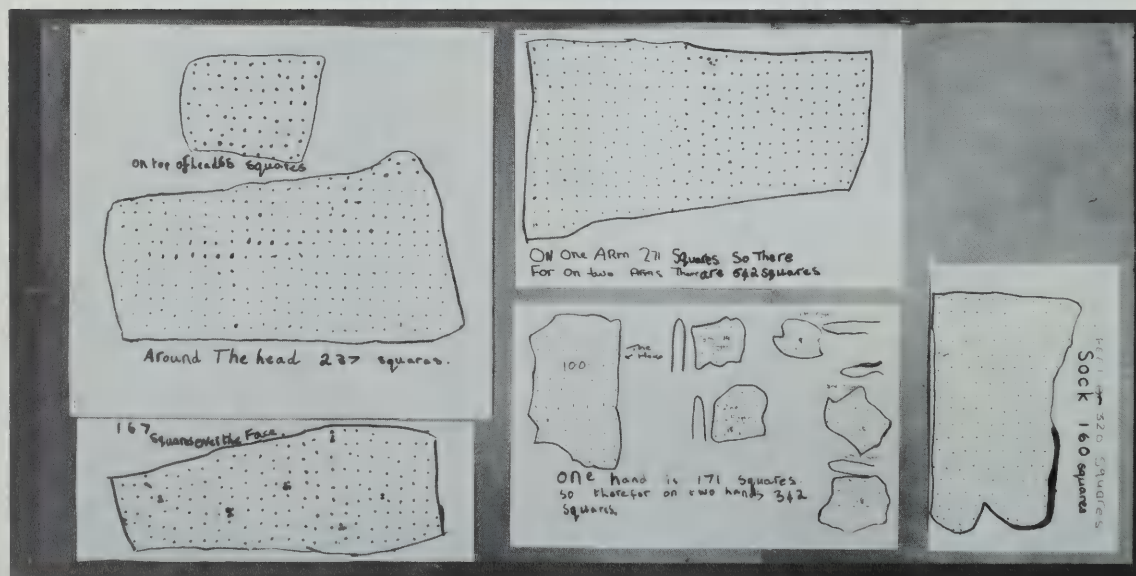 on top of head 65 squares
Around The head 237 squares.
167
Squares over the Face.
ON One ARm 271 Squares So There
For on two Arms There are 542 squares
100
The
one hand is 171 squares
so therefor on two hands 342
squares.
Sock 160 squares
320 squares